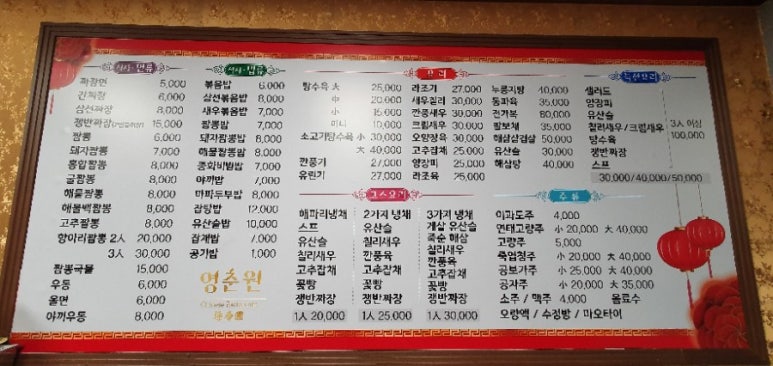 식사·면류
짜장면 5,000
간짜장 6,000
삼선짜장 8,000
쟁반짜장 15,000
짬뽕 6,000
돼지짬뽕 7,000
홍합짬뽕 8,000
굴짬뽕 8,000
해물짬뽕 8,000
해물백짬뽕 8,000
고추짬뽕 8,000
항아리짬뽕 2인 20,000
3인 30,000
짬뽕국물 15,000
우동 6,000
울면 6,000
야끼우동 8,000
식사·밥류
볶음밥 6,000
삼선볶음밥 8,000
새우볶음밥 7,000
짬뽕밥 7,000
돼지짬뽕밥 8,000
해물짬뽕밥 8,000
중화비빔밥 7,000
야끼밥 7,000
마파두부밥 8,000
잡탕밥 12,000
유산슬밥 10,000
잡채밥 7,000
공기밥 1,000
영춘원
Chinese Restaurant
요리
탕수육 大 25,000
中 20,000
小 15,000
미니 10,000
소고기탕수육 小 30,000
大 40,000
깐풍기 27,000
유린기 27,000
라조기 27,000
새우칠리 30,000
깐풍새우 30,000
크림새우 30,000
오향장육 30,000
고추잡채 25,000
양장피 25,000
라조육 25,000
누룽지탕 40,000
동파육 35,000
전가복 80,000
팔보채 35,000
해삼쥬스 50,000
유산슬 30,000
해삼탕 40,000
특선요리
샐러드
양장피
유산슬
칠리새우/크림새우
탕수육
쟁반짜장
스프
3인 이상
100,000
30,000/40,000/50,000
코스요리
해파리냉채
스프
유산슬
칠리새우
고추잡채
꽃빵
쟁반짜장
1인 20,000
2가지 냉채
유산슬
칠리새우
깐풍육
고추잡채
꽃빵
쟁반짜장
1인 25,000
3가지 냉채
게살 유산슬
죽순 해삼
칠리새우
깐풍육
고추잡채
꽃빵
쟁반짜장
1人 30,000
주류
이과두주 4,000
연태고량주 小 20,000 大 40,000
고량주 5,000
죽엽청주 小 20,000 大 40,000
공보가주 小 25,000 大 40,000
공자주 小 20,000 大 35,000
소주 / 맥주 4,000 음료수
오량액 / 수정방 / 마오타이